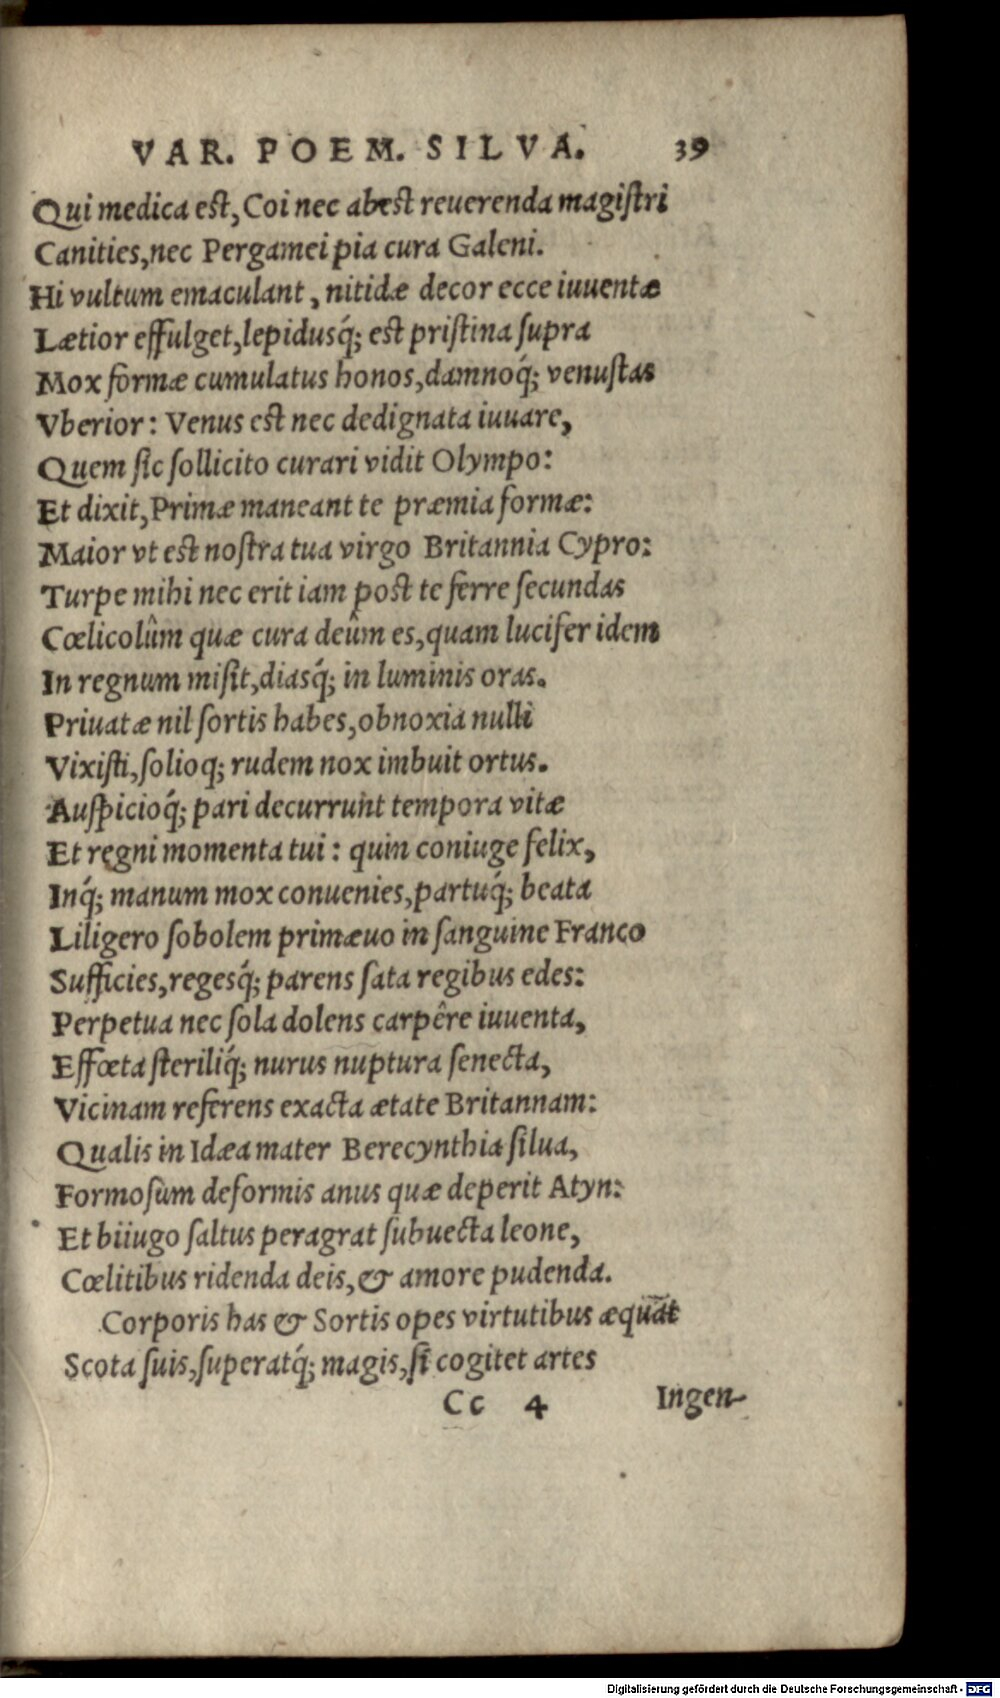 VAR. POEM. SILVA. 39
Qui medica est, Coi nec abest reuerenda magiſtri
Canities, nec Pergamei pia cura Galeni.
Hi vultum emaculant, nitidæ decor ecce iuuentæ
Lætior effulget, lepidusq́; est priſtina ſupra
Mox formæ cumulatus honos, damnoq́; venuſtas
Vberior: Venus est nec dedignata iuuare,
Quem ſic ſollicito curari vidit Olympo:
Et dixit, Primæ maneant te præmia formæ:
Maior vt est noſtra tua virgo Britannia Cypro:
Turpe mihi nec erit iam post te ferre ſecundas
Cœlicolûm quæ cura deûm es, quam lucifer idem
In regnum miſit, diasq́; in luminis oras.
Priuatæ nil ſortis habes, obnoxia nulli
Vixiſti, ſolioq; rudem nox imbuit ortus.
Auſpicioq́; pari decurrunt tempora vitæ
Et regni momenta tui: quin coniuge felix,
Inq́; manum mox conuenies, partuq́; beata
Liligero ſobolem primæuo in ſanguine Franco
Sufficies, regesq́; parens ſata regibus edes:
Perpetua nec ſola dolens carpêre iuuenta,
Effœta ſteriliq́; nurus nuptura ſenecta,
Vicinam referens exacta ætate Britannam:
Qualis in Idæa mater Berecynthia ſilua,
Formoſum deformis anus quæ deperit Atyn:
Et biiugo ſaltus peragrat ſubuecta leone,
Cœlitibus ridenda deis, & amore pudenda.
Corporis has & Sortis opes virtutibus æquāt
Scota ſuis, ſuperatq́; magis, ſi cogitet artes
Cc 4 Ingen-
Digitalisierung gefördert durch die Deutsche Forschungsgemeinschaft - DFG